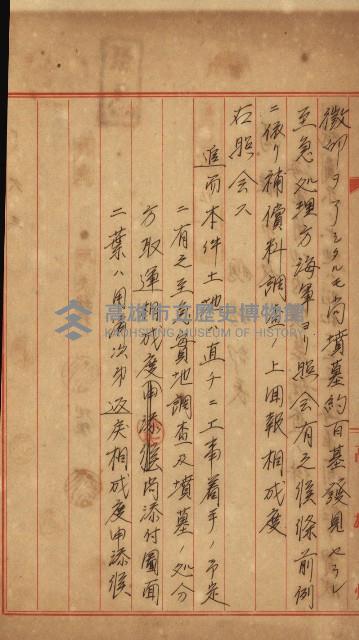 徴卸ヲ了シタルモ内墳墓約百基發見セラレ
至急処理方海軍ヨリ照会有之候條前例
ニ依リ補償料調査ノ上回報相成度
右照会ス
追而本件土地ハ直チニ工事着手ノ予定
ニ有之至急實地調査及墳墓ノ処分
方取運相成度申添候尚添付圖面
二葉ハ用済次第返戻相成度申添候
高雄市立歷史博物館
KAOHSIUNG MUSEUM OF HISTORY